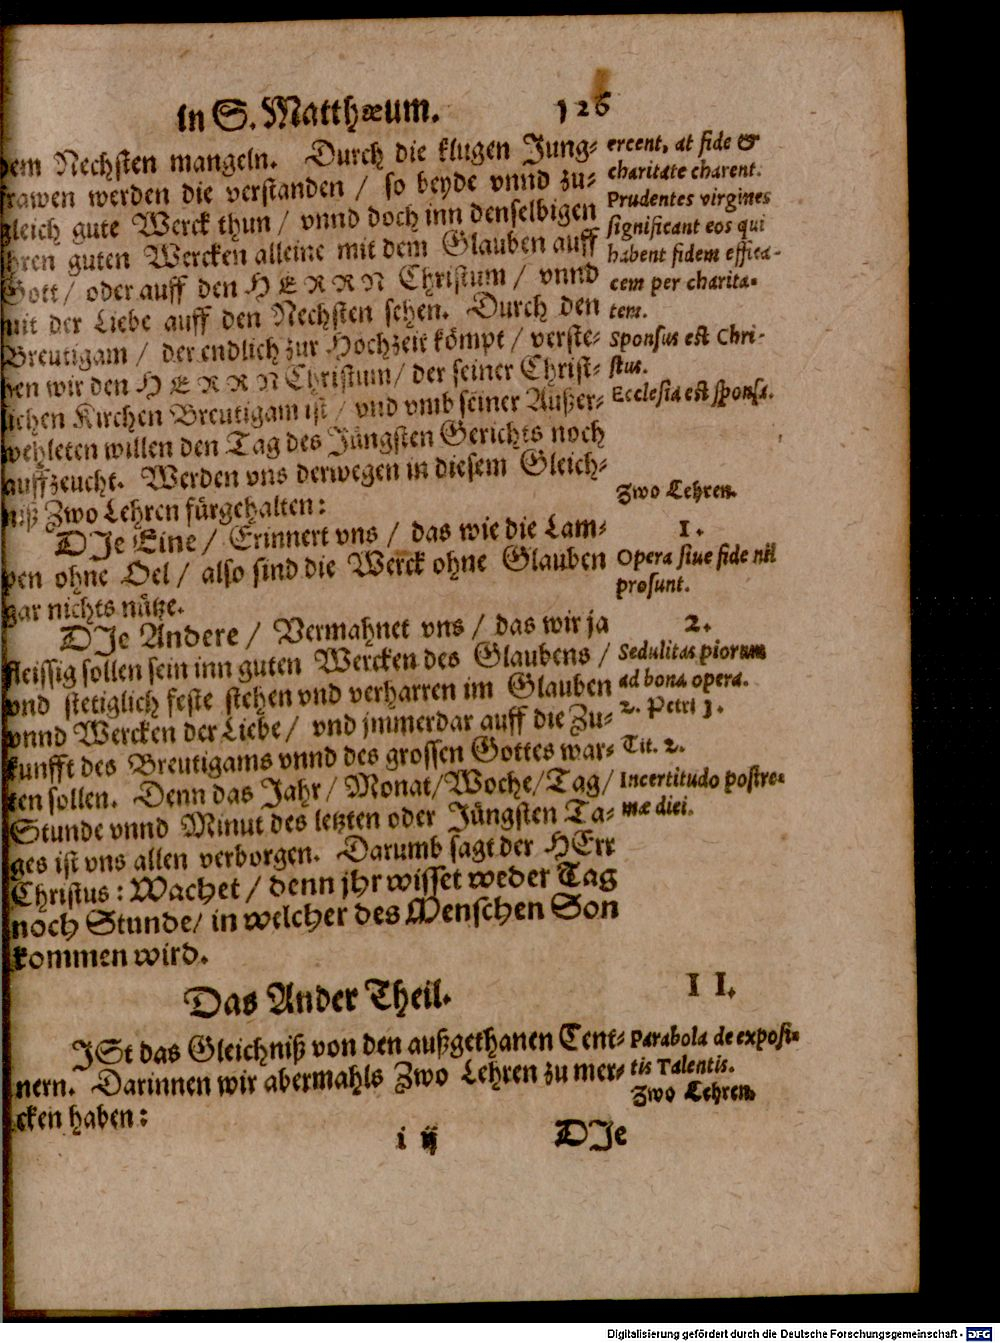 in S. Matthæum. 126
dem Nechsten mangeln. Durch die klugen Jung-
frawen werden die verstanden / so beyde vnnd zu-
gleich gute Werck thun / vnnd doch inn denselbigen
jhren guten Wercken alleine mit dem Glauben auff
Gott / oder auff den HERRN Christum / vnnd
mit der Liebe auff den Nechsten sehen. Durch den
Breutigam / der endlich zur Hochzeit kömpt / verste-
hen wir den HERRN Christum / der seiner Christ-
lichen Kirchen Breutigam ist / vnd vmb seiner Außer-
wehleten willen den Tag des Jüngsten Gerichts noch
auffzeucht. Werden vns derwegen in diesem Gleich-
niß Zwo Lehren fürgehalten:
DJe Eine / Erinnert vns / das wie die Lam-
pen ohne Oel / also sind die Werck ohne Glauben
gar nichts nütze.
DJe Andere / Vermahnet vns / das wir ja
fleissig sollen sein inn guten Wercken des Glaubens /
vnd stetiglich feste stehen vnd verharren im Glauben
vnnd Wercken der Liebe / vnd jmmerdar auff die Zu-
kunfft des Breutigams vnnd des grossen Gottes war-
ten sollen. Denn das Jahr / Monat / Woche / Tag /
Stunde vnnd Minut des letzten oder Jüngsten Ta-
ges ist vns allen verborgen. Darumb sagt der HErr
Christus: Wachet / denn jhr wisset weder Tag
noch Stunde / in welcher des Menschen Son
kommen wird.
Das Ander Theil.
JSt das Gleichniß von den außgethanen Cent-
nern. Darinnen wir abermahls Zwo Lehren zu mer-
cken haben:
i ij DJe
ercent, at fide &
charitate charent.
Prudentes virgines
significant eos qui
habent fidem effica-
cem per charita-
tem.
Sponsus est Chri-
stus.
Ecclesia est sponsa.
Zwo Lehren.
1.
Opera siue fide nil
prosunt.
2.
Sedulitas piorum
ad bona opera.
2. Petri 1.
Tit. 2.
Incertitudo postre-
mæ diei.
II.
Parabola de exposi-
tis Talentis.
Zwo Lehren.
Digitalisierung gefördert durch die Deutsche Forschungsgemeinschaft - DFG